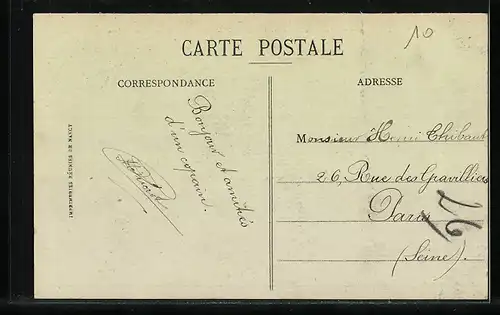 10
CARTE POSTALE
CORRESPONDANCE
ADRESSE
IMPRIMERIES RÉUNIES DE NANCY
Bonjour et amitiés
d'un copain.
Monsieur Henri Thibault
26, Rue des Gravilliers
Paris
26
(Seine).